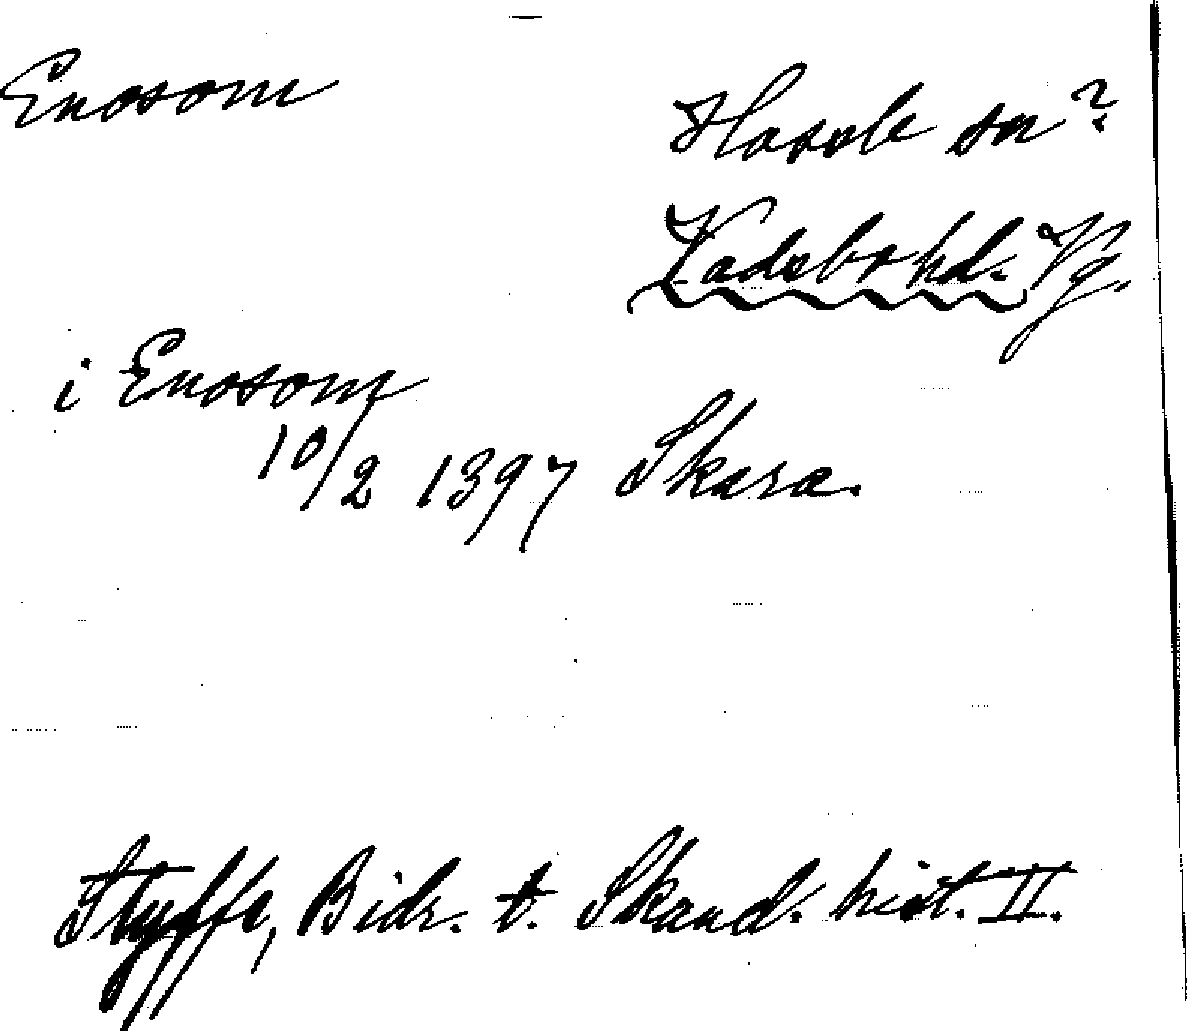 Enosom
Horsle sn?
Vadsbo hd. Vg.
i Enosom
10/2 1397 Skara.
Styffe, Bidr. t. Skand. hist. II.